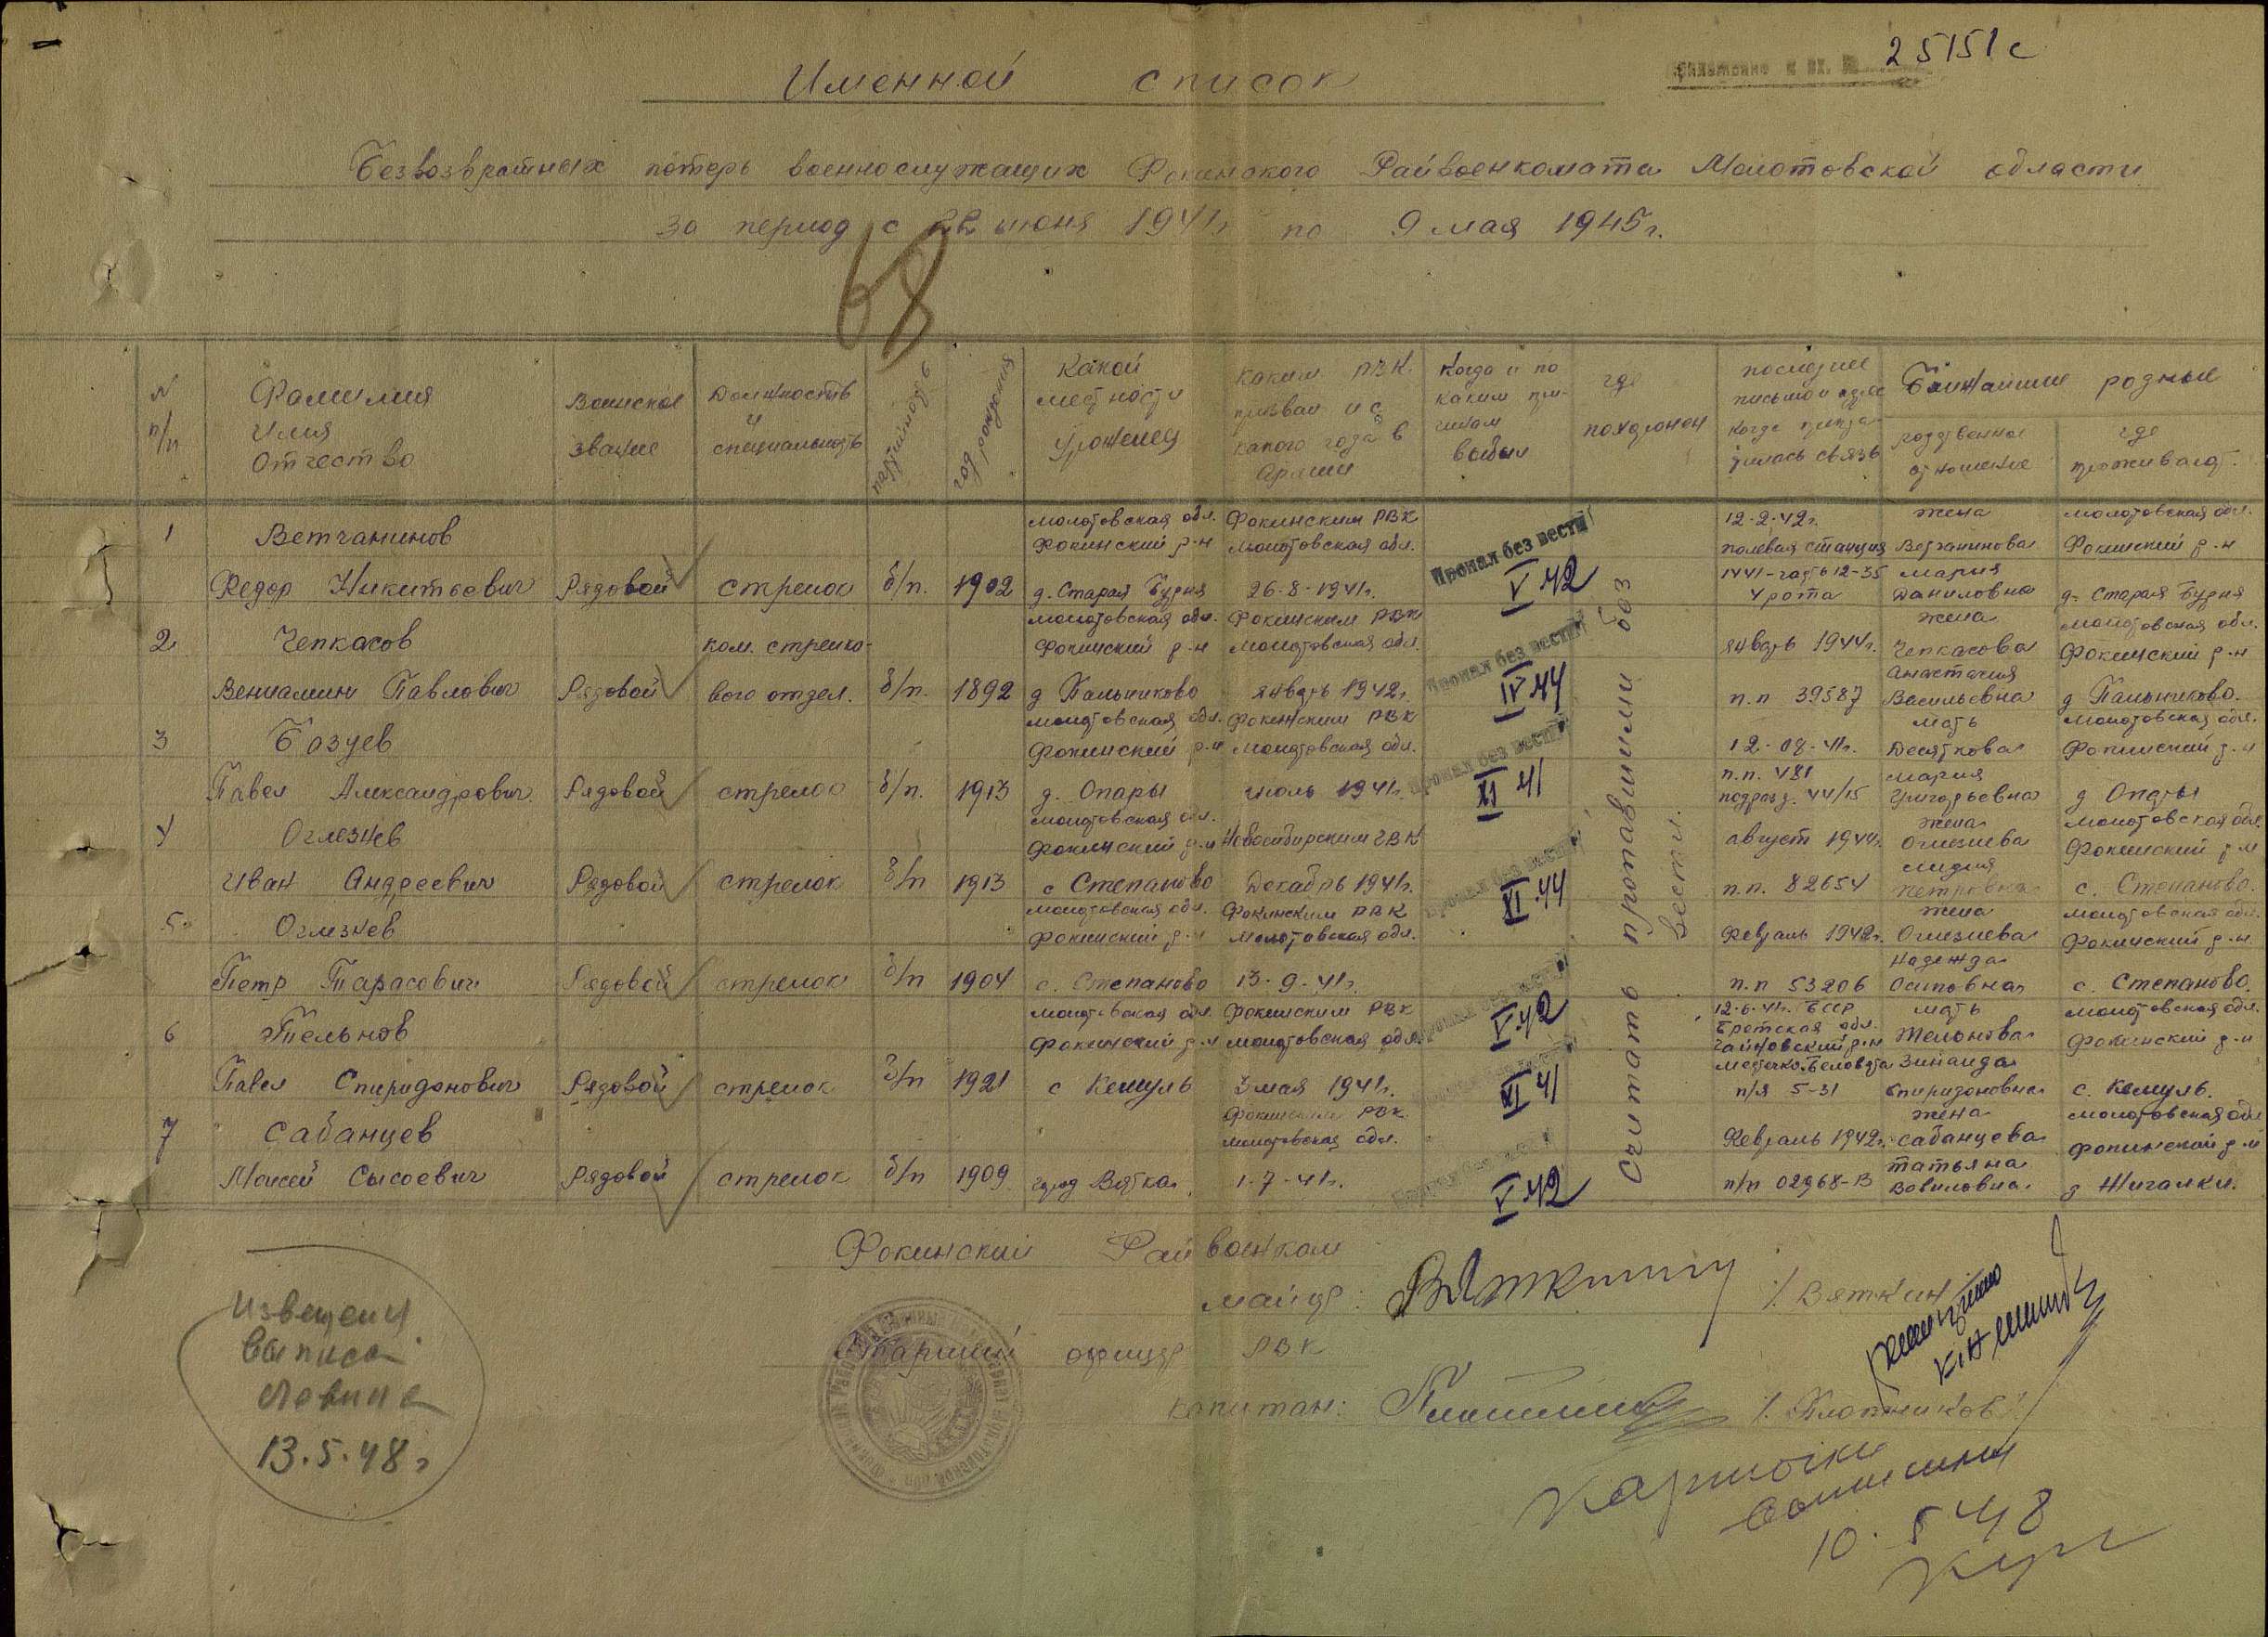 25151с
Именной список
Безвозвратных потерь военнослужащих Фокинского Райвоенкомата Молотовской области
за период с 22 июня 1941г по 9 мая 1945г.
68
N п/п
Фамилия Имя Отчество
Воинское звание
Должность и специальность
партийность
год рождения
Какой местности уроженец
Каким РВК призван и с какого года в Армии
Когда и по каким причинам выбыл
где похоронен
последнее письмо и адрес когда прекратилась связь
Ближайшие родные
родственное отношение
где проживают.
1
Ветчанинов
Федор Никитьевич
Рядовой
стрелок
б/п.
1902
Молотовская обл.
Фокинский р-н
д. Старая Бурня
Фокинским РВК
Молотовская обл.
26-8-1941г.
Пропал без вести
V 42
12-2-42г.
полевая станция
1441-часть 12-35
4 рота
жена
Ветчанинова
Мария
Даниловна
Молотовская обл.
Фокинский р-н
д. Старая Бурня
2
Чепкасов
Вениамин Павлович
Рядовой
ком. стрелко-
вого отдел.
б/п.
1892
Молотовская обл.
Фокинский р-н
д Пальниково
Фокинским РВК
Молотовская обл.
январь 1942г.
Пропал без вести
IV 44
январь 1944г.
п.п 39587
жена
Чепкасова
Анастасия
Васильевна
Молотовская обл.
Фокинский р-н
д Пальниково.
3
Базуев
Павел Александрович
Рядовой
стрелок
б/п.
1913
Молотовская обл.
Фокинский р-н
д. Опары
Фокинским РВК
Молотовская обл.
июль 1941г.
Пропал без вести
XI 41
12-08-41г.
п.п. 481
подразд. 44/15
мать
Десяткова
Мария
Григорьевна
Молотовская обл.
Фокинский р-н
д Опары
4
Оглезнев
Иван Андреевич
Рядовой
стрелок
б/п
1913
Молотовская обл.
Фокинский р-н
с Степаново
Новосибирским ГВК
Декабрь 1941г.
Пропал без вести
XI 44
август 1944г.
п.п. 82654
жена
Оглезнева
Лидия
Петровна
Молотовская обл.
Фокинский р-н
с. Степаново.
5
Оглезнев
Петр Тарасович
Рядовой
стрелок
б/п
1904
Молотовская обл.
Фокинский р-н
с. Степаново
Фокинским РВК
Молотовская обл.
13-9-41г.
Пропал без вести
V 42
Февраль 1942г.
п.п 53206
жена
Оглезнева
Надежда
Осиповна
Молотовская обл.
Фокинский р-н
с. Степаново.
6
Тельнов
Павел Спиридонович
Рядовой
стрелок
б/п
1921
Молотовская обл.
Фокинский р-н
с Кемуль
Фокинским РВК
Молотовская обл.
3 мая 1941г.
XI 41
12-6-41г. БССР
Бретская обл.
п/я 5-31
мать
Зинаида
Спиридоновна
Молотовская обл.
Фокинский р-н
с. Кемуль.
7
Сабанцев
Моисей Сысоевич
Рядовой
стрелок
б/п
1909
город Вятка
Фокинским РВК
Молотовская обл.
1-7-41г.
Пропал без вести
V 42
Февраль 1942г.
п/п 02968-В
жена
Сабанцева
Татьяна
Вавиловна
Молотовская обл.
Фокинский р-н
д Жигалки.
Считать пропавшими без вести.
Фокинский Райвоенком
майор: /Вяткин/
Старший офицер РВК
капитан: /Плотников/
Извещения
выписал
Левина
13.5.48г
Карточки
выписаны
10.5 48